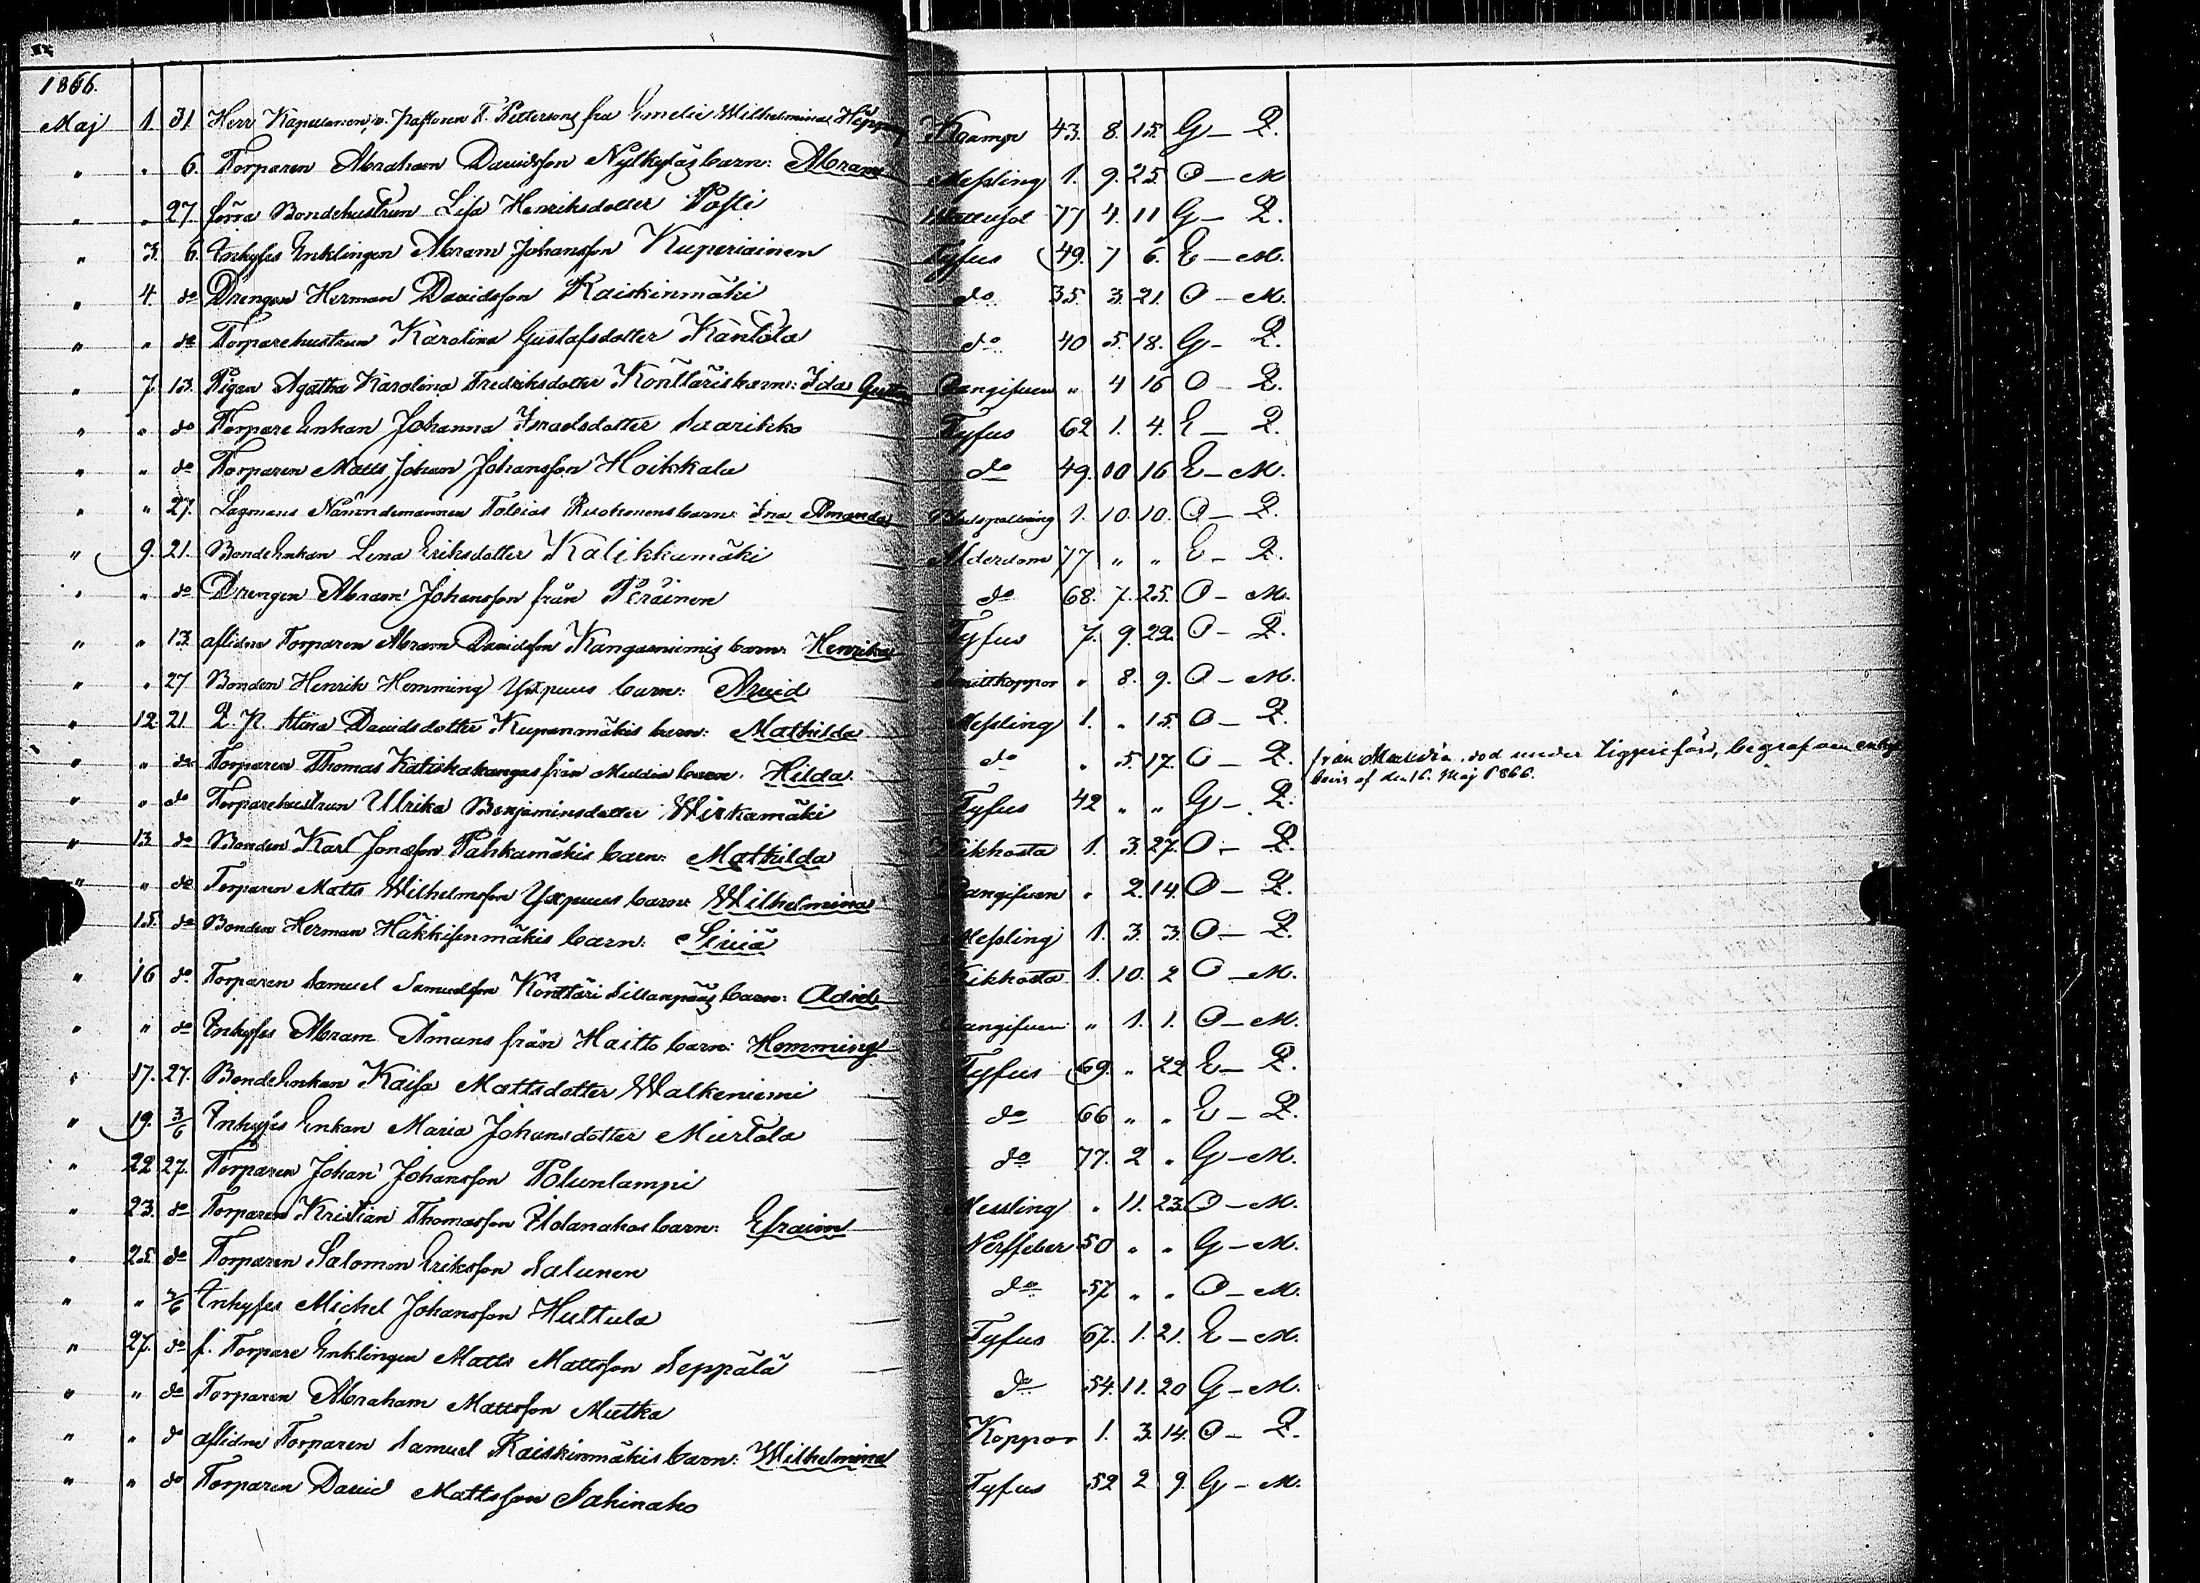 1866.
Maj 1 31 Herr Kapellanen, v. Pastoren F. Pettersons fru Emelie Wilhelmina Kramp 43. 8. 15. G – Q.
" " 6. Torparen Abraham Davidsson Nylkyläs barn: Abram Messling 1. 9. 25. O – M
" " 27 förra Bondehustrun Lisa Henriksdotter Posti 77 4. 11 G – Q.
" 3. 6. Inhyses Enklingen Abram Johansson Kuperiainen Tyfus 49. 7 6. E – M.
" 4. do Drengen Herman Davidsson Raiskinmäki do 35. 3. 21. O – M.
" " do Torparehustrun Karolina Gustafsdotter Käntölä do 40 5. 18. G – Q.
" 7. 13. Pigan Agatha Karolina Fredriksdotter Könttäris barn: Ida " 4 16 O – Q.
" " do Torpare Enkan Johanna Israelsdotter Saarikko Tyfus 62 1. 4. E – Q.
" " do Torparen Matts Johan Johansson Hoikkala do 49. 10 16 E – M.
" " 27. Lagmans Nämndemannen Tobias Ruohonens barn: Ina Amanda 1. 10. 10. O – Q.
" 9. 21. Bonde Enkan Lena Eriksdotter Kalikkamäki Ålderdom 77 " " E – Q.
" " do Drengen Abram Johansson från Peräinen do 68. 7. 25. O – M.
" " 13 aflidne Torparen Abram Davidsson Kangasniemis barn: Henrika Tyfus 7. 9. 22. O – Q.
" " 27 Bonden Henrik Hemming Yxpuus barn: Arvid Smittkoppor " 8. 9. O – M.
" 12. 21 Q. P. Stina Davidsdotter Kupanmäkis barn: Mathilda Messling 1. " 15. O – Q.
" " do Torparen Thomas Katiskakangas från Muldia barn: Hilda do " 5. 17. O – Q. från Muldia, död under tiggerifärd, begrafven enligt
bevis af den 16. Maj 1866.
" " do Torparehustrun Ulrika Benjaminsdotter Wirkamäki Tyfus 42 " " G – Q.
" 13. do Bonden Karl Jonasson Pahkamäkis barn: Mathilda Kikhosta 1. 3. 27. O – Q.
" " do Torparen Matts Wilhelmsson Yxpuus barn: Wilhelmina " 2. 14. O – Q.
15. do Bonden Herman Häkkisenmäkis barn: Siviä Messling 1. 3. 3. O – Q.
" 16 do Torparen Samuel Samuelsson Könttäri Sillanpääs barn: Adiel Kikhosta 1. 10. 2 O – M.
" " do Inhyses Abram Åmans från Haitto barn: Hemming " 1. 1. O – M.
" 17. 27. Bonde Enkan Kaisa Mattsdotter Walkeniemi Tyfus 69. " 22 E – Q.
" 19. 3/6 Inhyses Enkan Maria Johansdotter Miertola do 66 " " E – Q.
" 22. 27. Torparen Johan Johansson Polunlampi do 77. 2 " G – M.
" 23. do Torparen Kristian Thomasson Ilolanahos barn: Efraim Messling " 11. 23. O – M.
" 25. do Torparen Salomon Eriksson Salunen Nerffeber 50 " " G – M.
" " 3/6 Inhyses Michel Johansson Huttula do 57 " " O – M.
" 27. do f. Torpare Enklingen Matts Mattsson Seppälä Tyfus 67. 1. 21. E – M.
" " do Torparen Abraham Mattsson Mutka do 54. 11. 20 G – M.
" " do aflidne Torparen Samuel Raiskinmäkis barn: Wilhelmina Koppor 1. 3. 14. O – Q.
" " do Torparen David Mattsson Sahinaho Tyfus 52 2 9. G – M.